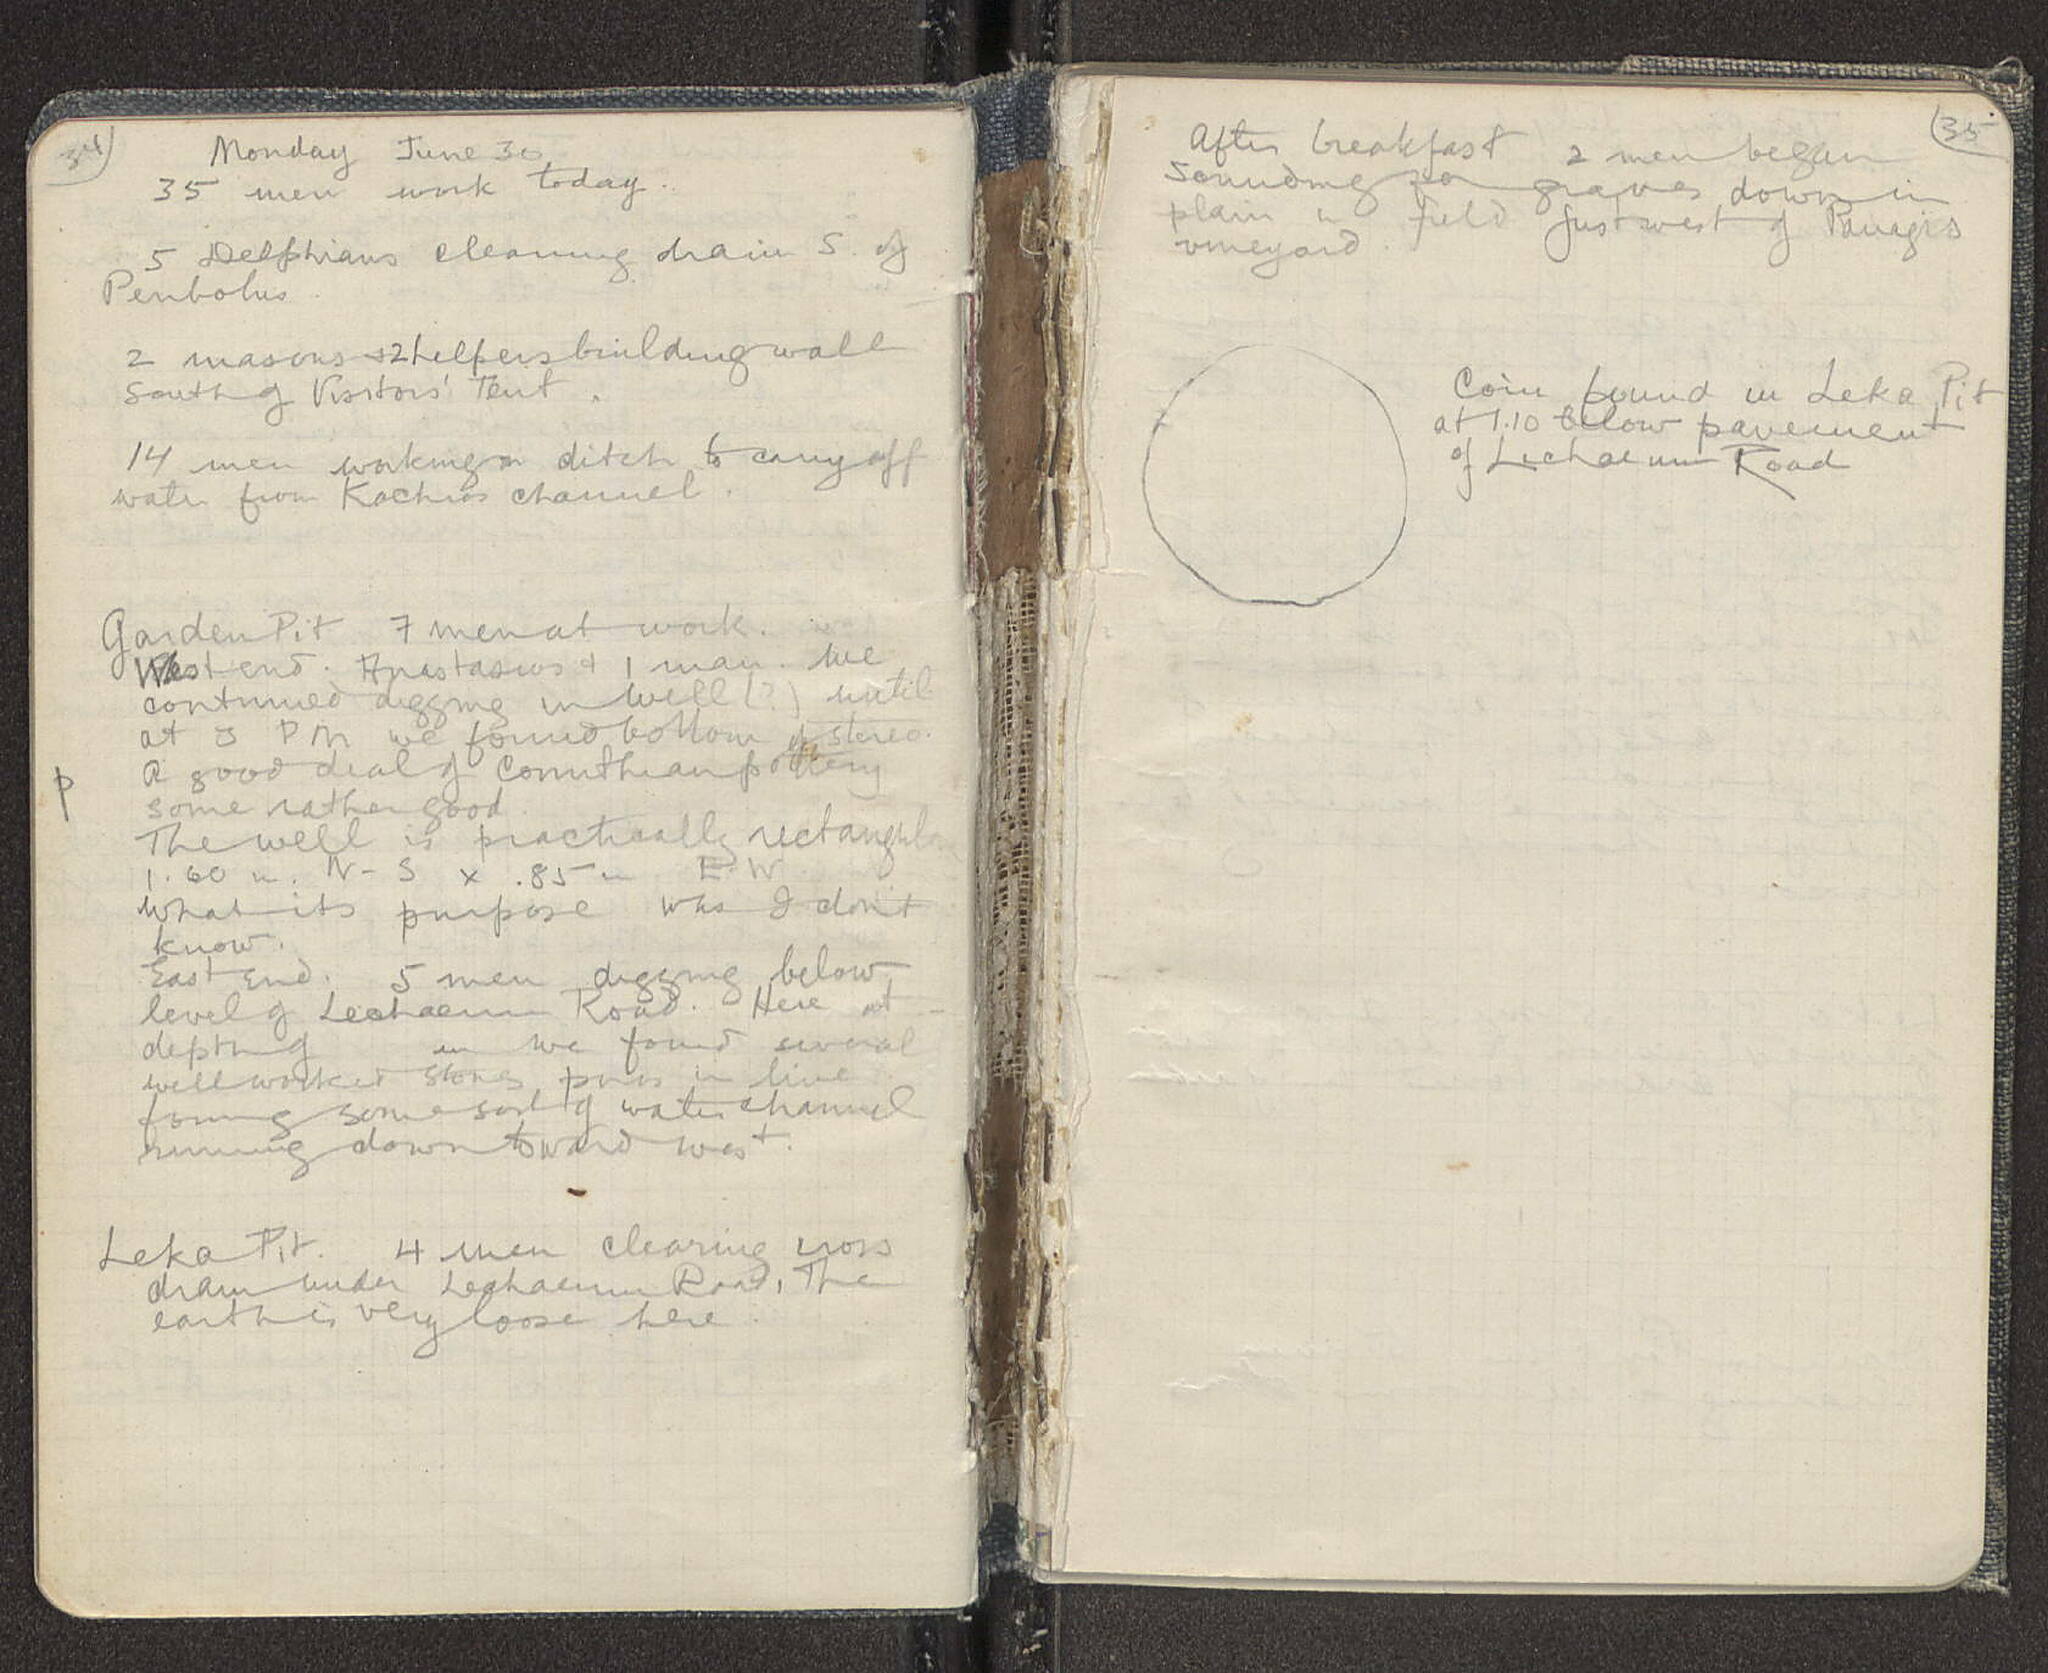 34
Monday June 30
35 men work today.
5 Delphians cleaning drain S. of
Peribolus.
2 masons + 2 helpers building wall
South of Visitors' Tent.
14 men working on ditch to carry off
water from channel.
Garden Pit 7 men at work.
West end. Anastasios + 1 man. We
continued digging in well (?) until
at 3 PM we found bottom of stereo.
p
A good deal of Corinthian pottery
some rather good
The well is practically rectangular
1.60 m. N-S x .85 m E.W.
What its purpose was I don't
know.
East end. 5 men digging below
level of Lechaeum Road. Here at
depth of m we found several
well worked stones in line
forming some sort of water channel
running down toward west.
Leka Pit. 4 men clearing cross
drain under Lechaeum Road. The
earth is very loose here.
35
After breakfast 2 men began
sounding for graves down in
plain in field just west of Panagis
vineyard.
Coin found in Leka Pit
at 1.10 below pavement
of Lechaeum Road